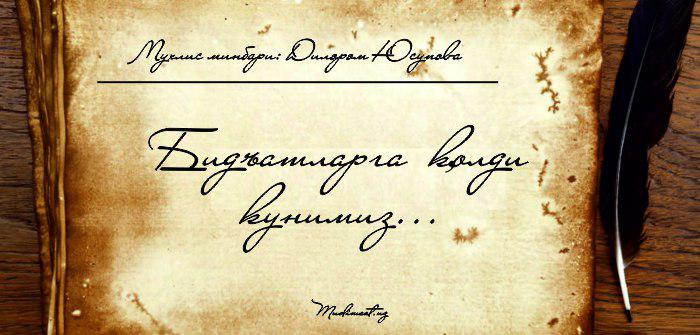 Мухлис минбари: Дилором Юсупова
Бидъатларга қолди
кунимиз...
Muslimaat.uz